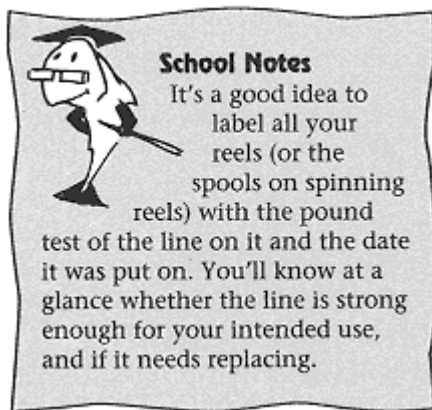 School Notes
It's a good idea to
label all your
reels (or the
spools on spinning
reels) with the pound
test of the line on it and the date
it was put on. You'll know at a
glance whether the line is strong
enough for your intended use,
and if it needs replacing.